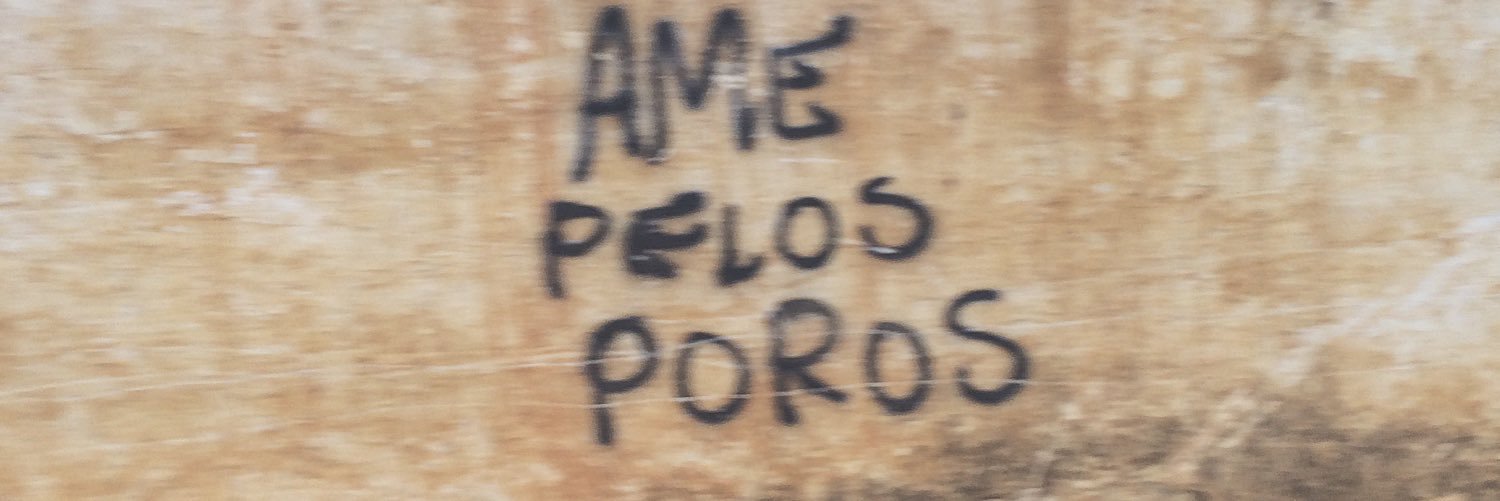 AME
PELOS
POROS